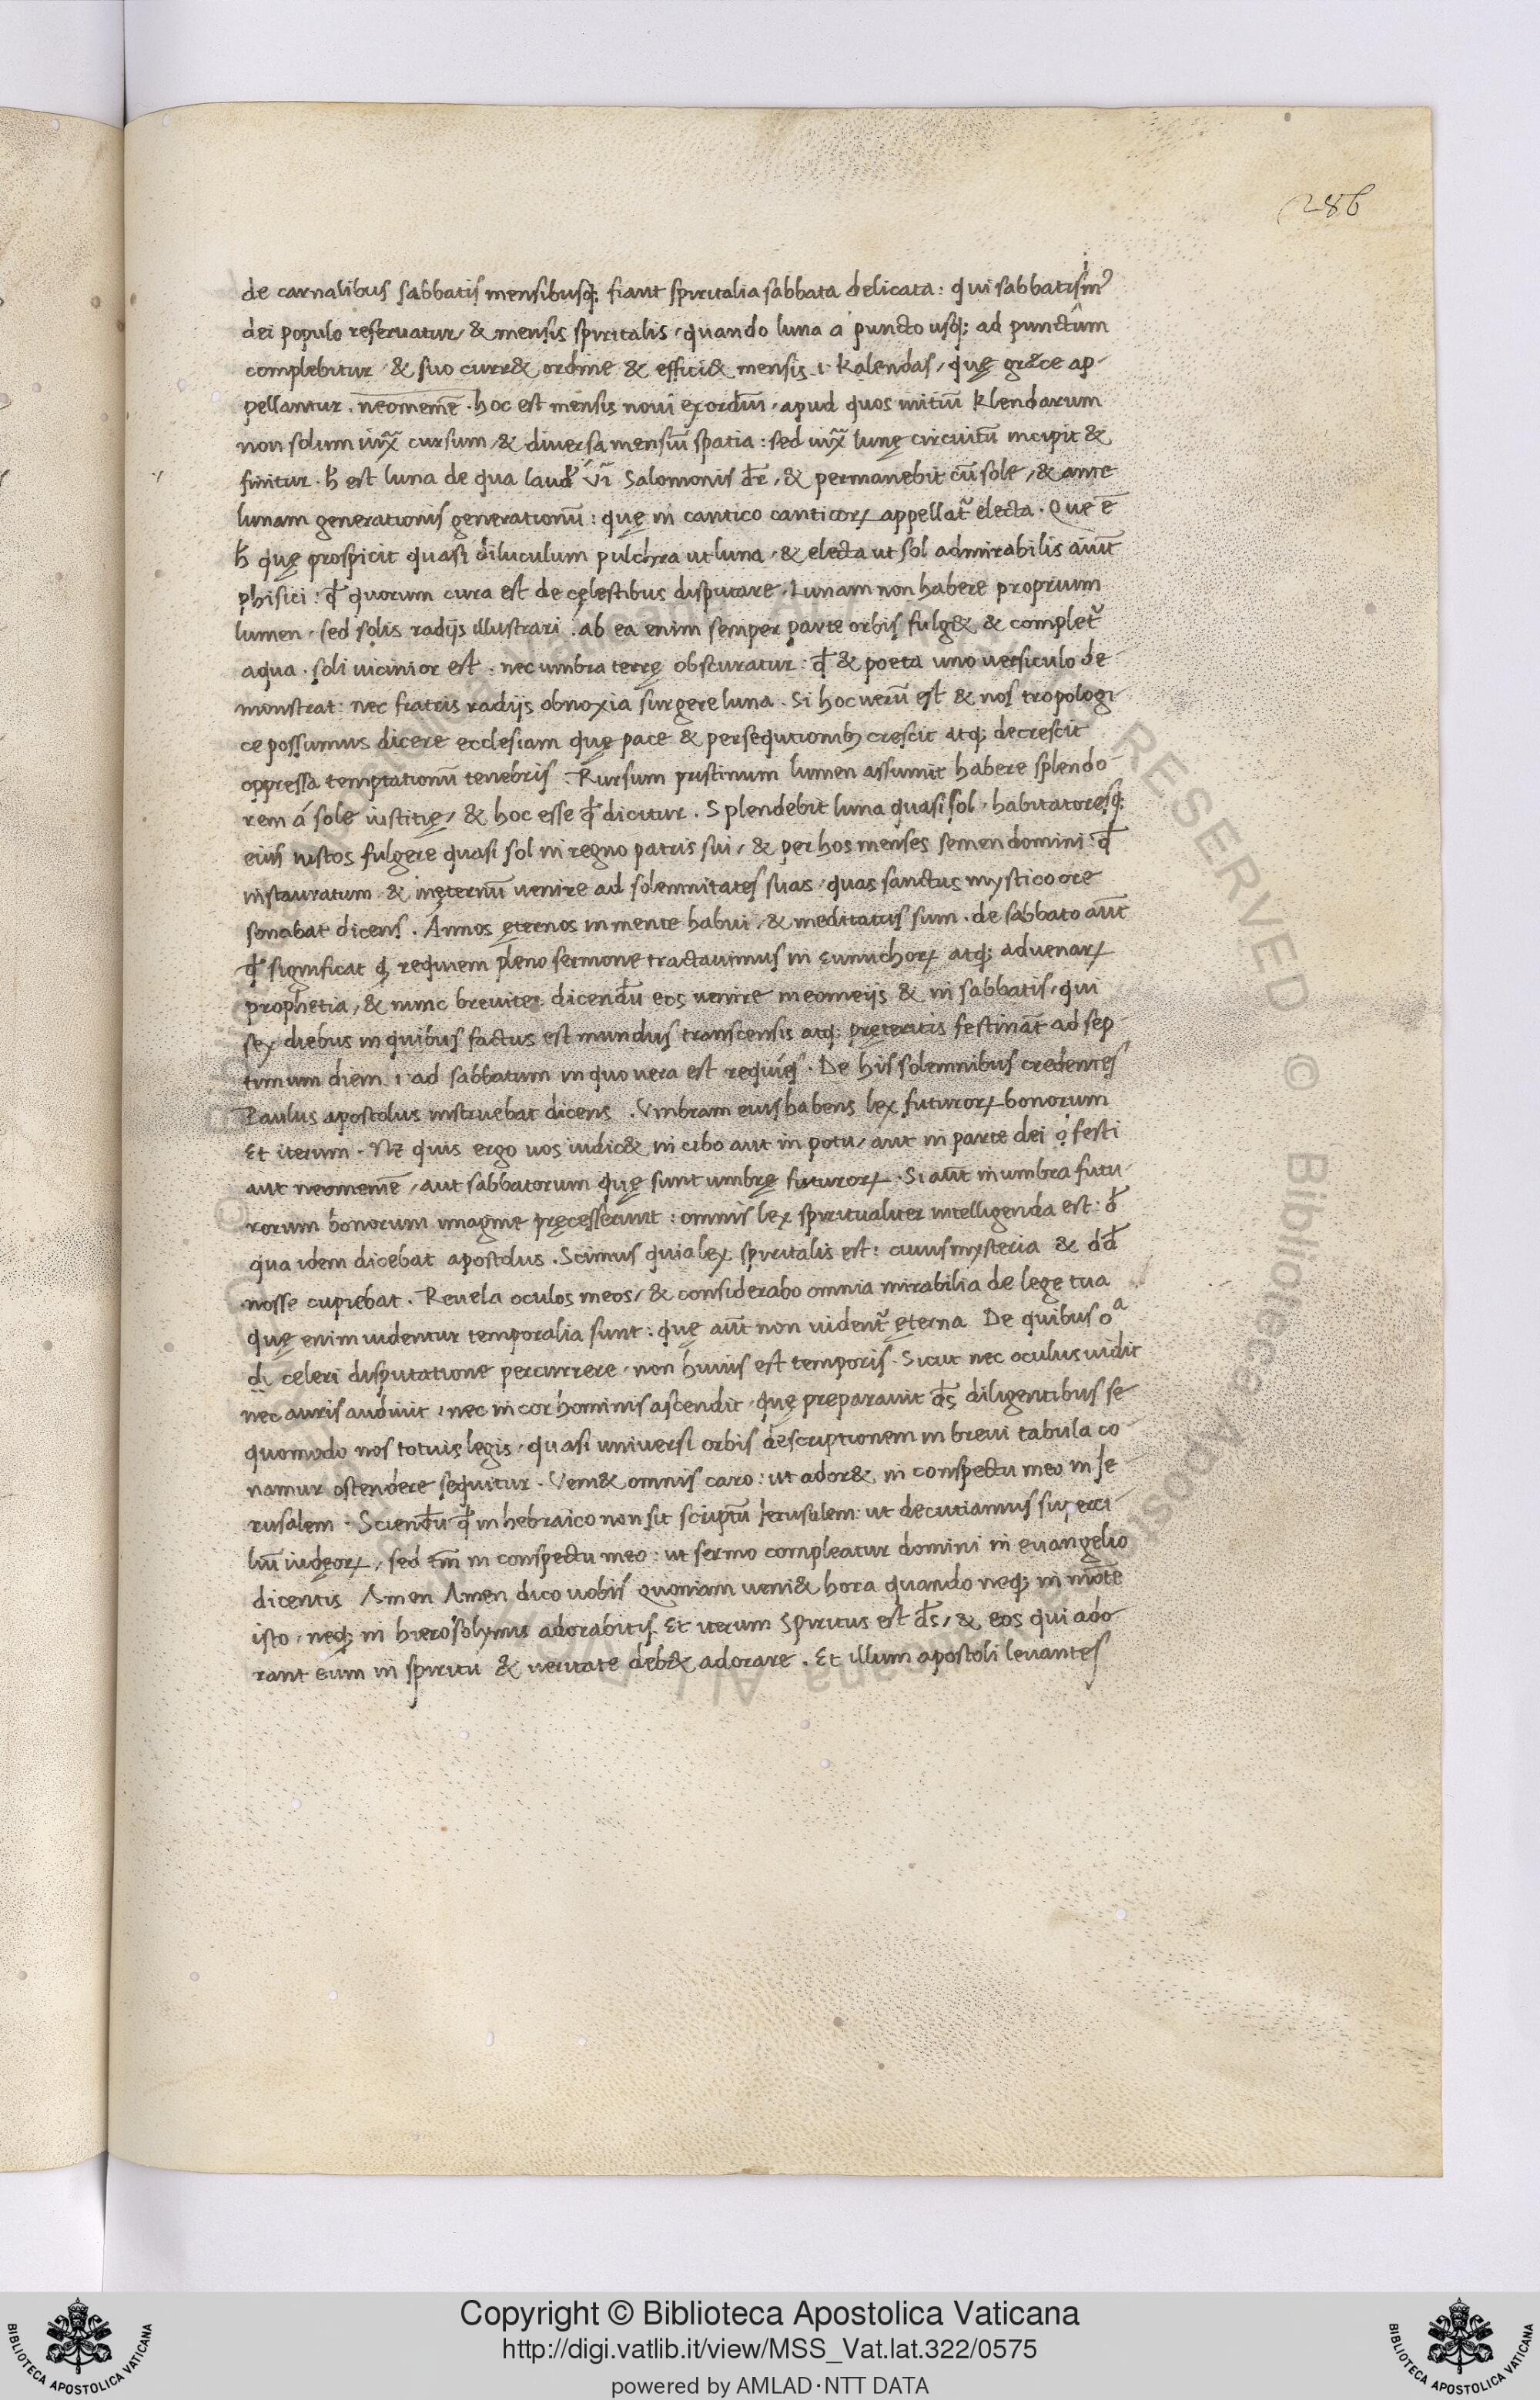 286
de carnalibus sabbatis mensibusq; fiant spiritalia sabbata delicata: qui sabbatism᾿
dei populo reseruatur, & mensis spiritalis, quando luna a puncto usq; ad punctum
complebitur & suo curr& ordine & effici& mensis .i. kalendas, quę grȩce ap-
pellantur. neomenię. hoc est mensis noui exordiū, apud quos initiū klendarum
non solum iux̄ cursum, & diuersa mensiū spatia: sed iux̄ lunę circuitū incipit &
finitur. h̄ est luna de qua Salomonis dr̄, & permanebit cū sole, & ante
lunam generationis generationū: quę in cantico canticoꝝ appellat᷑ electa. Que ē
h̄ quę prospicit quasi diluculum pulchra ut luna, & electa ut sol admirabilis aiūt
phisici: qđ quorum cura est de cęlestibus disputare. Lunam non habere proprium
lumen, sed solis radijs illustrari. ab ea enim semper parte orbis fulg& & complet᷑
aqua. soli uicinior est. nec umbra terrę obscuratur: qđ & poeta uno uersiculo de
monstrat: nec fratris radijs obnoxia surgere luna. Si hoc uerū est & nos tropologi
ce possumus dicere ecclesiam quę pace & persequtionib; crescit atq; decrescit
oppressa temptationū tenebris. Rursum pristinum lumen assumit habere splendo-
rem á sole iustitię, & hoc esse qđ dicitur. Splendebit luna quasi sol, habitatoresq;
eius iustos fulgere quasi sol in regno patris sui, & per hos menses semen domini: qđ
instauratum & inęternū uenire ad solemnitates suas, quas sanctus mystico ore
sonabat dicens. Annos ęternos in mente habui, & meditatus sum. de sabbato aūt
qđ significat requiem pleno sermone tractauimus in eunuchoꝝ atq; aduenaꝝ
prophetia, & nunc breuiter dicendū eos uenire in & in sabbatis, qui
sex diebus in quibus factus est mundus transcensis atq; pręteritis festināt ad sep-
timum diem .i. ad sabbatum in quo uera est requies. De his solemnibus credentes
Paulus apostolus instruebat dicens. Vmbram eius habens lex futuroꝝ bonorum
Et iterum. Ne quis ergo uos iudic& in cibo aut in potu, aut in parte dei festi
aut neomenię, aut sabbatorum quę sunt umbrę futuroꝝ. Si aūt in umbra futu-
rorum bonorum imagine pręcesserunt: omnis lex spiritualiter intelligenda est: đ
qua idem dicebat apostolus. Scimus quia lex spiritalis est: cuius mysteria & dđ
nosse cupiebat. Reuela oculos meos, & considerabo omnia mirabilia de lege tua
quę enim uidentur temporalia sunt: quę aūt non uident᷑ ęterna De quibus oᵃ
di celeri disputatione percurrere, non huius est temporis. Sicut nec oculus uidit
nec auris audiuit, nec in cor hominis ascendit, quę preparauit ds̄ diligentibus se
quomodo nos totius legis, quasi uniuersi orbis descriptionem in breui tabula co-
namur ostendere sequitur. Veni& omnis caro: ut ador& in conspectu meo in Je-
rusalem. Sciendū qđ in hebraico non sit scriptū Jerusalem: ut decutiamus superci-
liū iudęoꝝ, sed tm̄ in conspectu meo: ut sermo compleatur domini in euangelio
dicentis Amen Amen dico uobis quoniam ueni& hora quando neq; in mōte
isto, neq; in hierosolymis adorabitis. Et iterum Spiritus est ds̄, & eos qui ado-
rant eum in spiritu & ueritate deb& adorare. Et illum apostoli leuantes
Copyright © Biblioteca Apostolica Vaticana
http://digi.vatlib.it/view/MSS_Vat.lat.322/0575
powered by AMLAD·NTT DATA